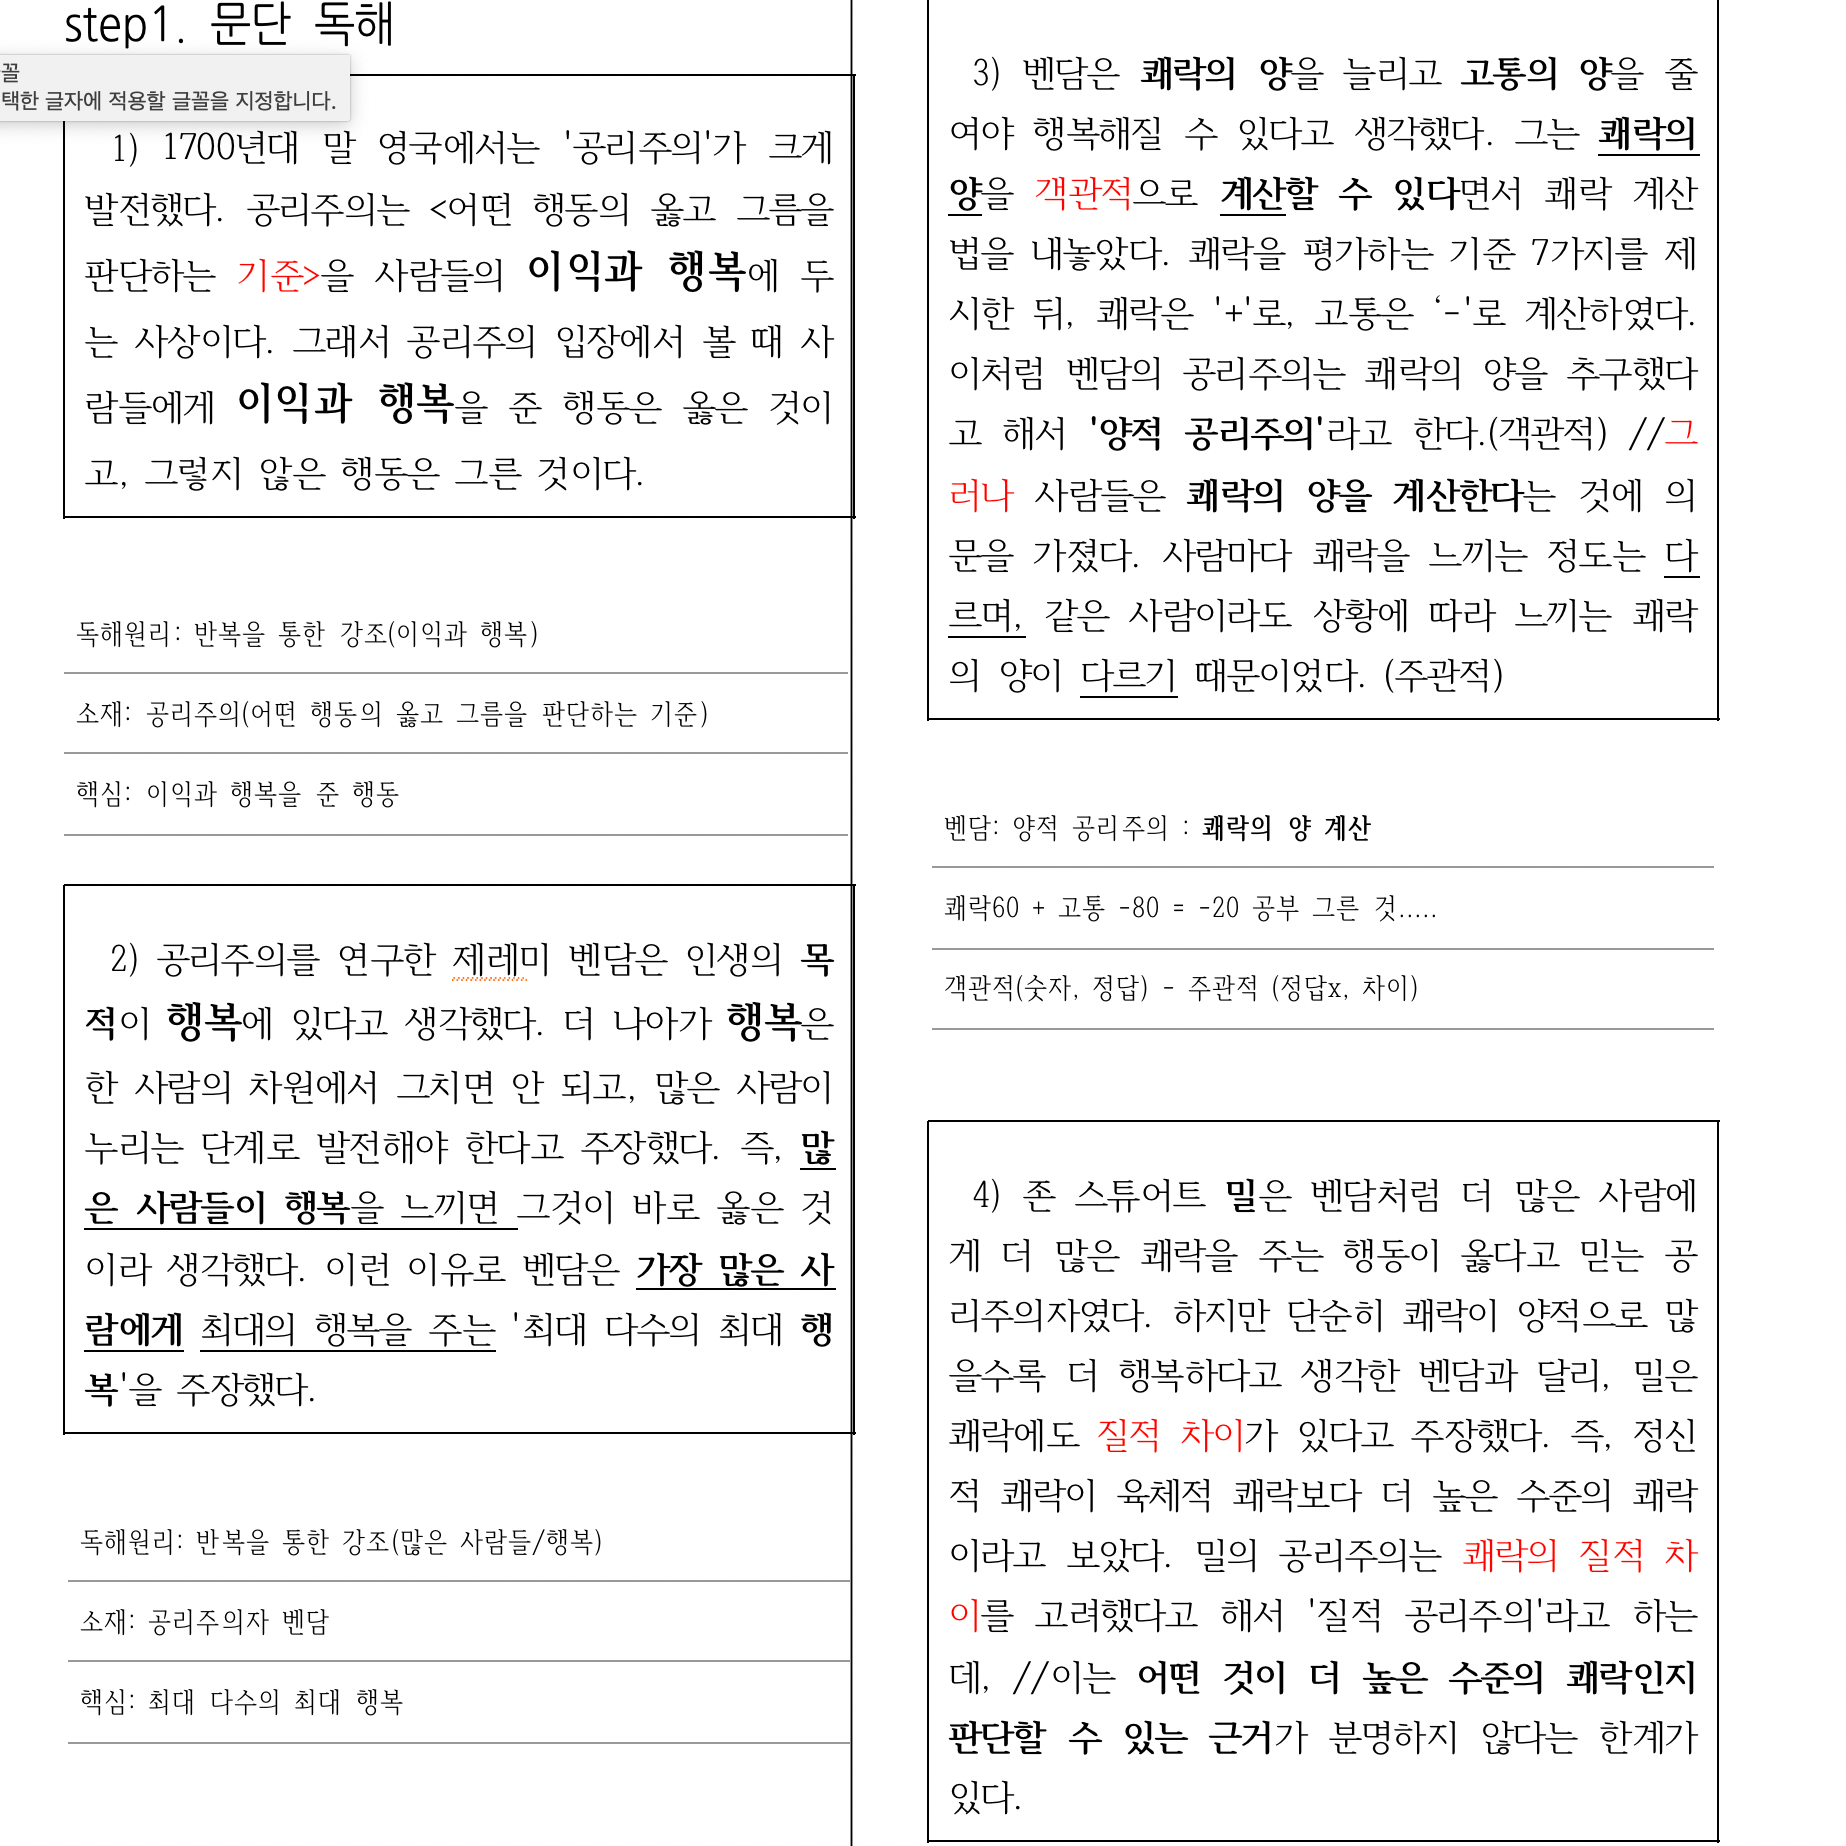 step1. 문단 독해
꼴
택한 글자에 적용할 글꼴을 지정합니다.
1) 1700년대 말 영국에서는 '공리주의'가 크게
발전했다. 공리주의는 <어떤 행동의 옳고 그름을
판단하는 기준>을 사람들의 이익과 행복에 두
는 사상이다. 그래서 공리주의 입장에서 볼 때 사
람들에게 이익과 행복을 준 행동은 옳은 것이
고, 그렇지 않은 행동은 그른 것이다.
독해원리: 반복을 통한 강조(이익과 행복)
소재: 공리주의(어떤 행동의 옳고 그름을 판단하는 기준)
핵심: 이익과 행복을 준 행동
2) 공리주의를 연구한 제레미 벤담은 인생의 목
적이 행복에 있다고 생각했다. 더 나아가 행복은
한 사람의 차원에서 그치면 안 되고, 많은 사람이
누리는 단계로 발전해야 한다고 주장했다. 즉, 많
은 사람들이 행복을 느끼면 그것이 바로 옳은 것
이라 생각했다. 이런 이유로 벤담은 가장 많은 사
람에게 최대의 행복을 주는 '최대 다수의 최대 행
복'을 주장했다.
독해원리: 반복을 통한 강조(많은 사람들/행복)
소재: 공리주의자 벤담
핵심: 최대 다수의 최대 행복
3) 벤담은 쾌락의 양을 늘리고 고통의 양을 줄
여야 행복해질 수 있다고 생각했다. 그는 쾌락의
양을 객관적으로 계산할 수 있다면서 쾌락 계산
법을 내놓았다. 쾌락을 평가하는 기준 7가지를 제
시한 뒤, 쾌락은 '+'로, 고통은 ‘-'로 계산하였다.
이처럼 벤담의 공리주의는 쾌락의 양을 추구했다
고 해서 '양적 공리주의'라고 한다.(객관적) //그
러나 사람들은 쾌락의 양을 계산한다는 것에 의
문을 가졌다. 사람마다 쾌락을 느끼는 정도는 다
르며, 같은 사람이라도 상황에 따라 느끼는 쾌락
의 양이 다르기 때문이었다. (주관적)
벤담: 양적 공리주의 : 쾌락의 양 계산
쾌락60 + 고통 -80 = -20 공부 그른 것.....
객관적(숫자, 정답) - 주관적 (정답x, 차이)
4) 존 스튜어트 밀은 벤담처럼 더 많은 사람에
게 더 많은 쾌락을 주는 행동이 옳다고 믿는 공
리주의자였다. 하지만 단순히 쾌락이 양적으로 많
을수록 더 행복하다고 생각한 벤담과 달리, 밀은
쾌락에도 질적 차이가 있다고 주장했다. 즉, 정신
적 쾌락이 육체적 쾌락보다 더 높은 수준의 쾌락
이라고 보았다. 밀의 공리주의는 쾌락의 질적 차
이를 고려했다고 해서 '질적 공리주의'라고 하는
데, //이는 어떤 것이 더 높은 수준의 쾌락인지
판단할 수 있는 근거가 분명하지 않다는 한계가
있다.